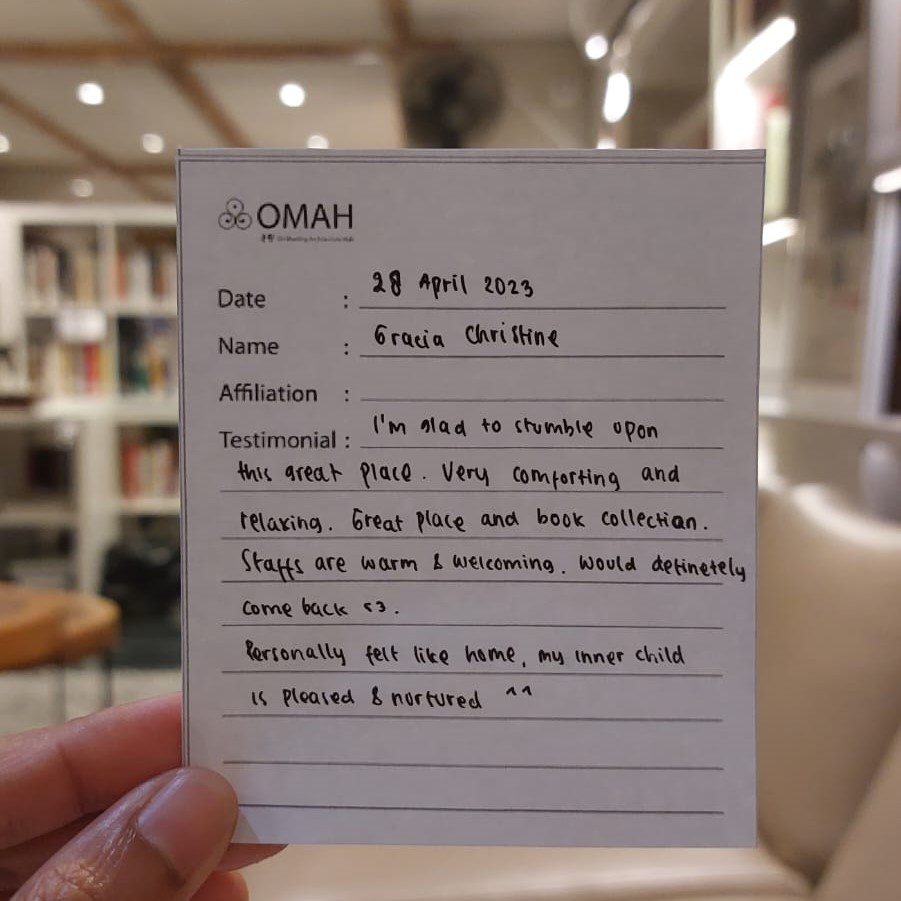 OMAH
Date : 28 April 2023
Name : Gracia Christine
Affiliation :
Testimonial : I'm glad to stumble upon
this great place. Very comforting and
relaxing. Great place and book collection.
Staffs are warm & welcoming. Would definetely
come back <3.
Personally felt like home, my inner child
is pleased & nurtured ^^